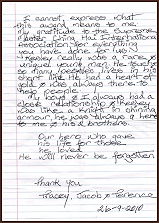 I cannot express what
this award means to me.
My gratitude to the Supreme
Master Ching Hai International
Association for everything
you have done for us.
Keesley really was a rare,
unique young man. He touched
so many peoples lives in his
short life. He had a heart of
gold & was always there to
help people.
My son & I always had a
close relationship & Keesley
was like a knight in shining
armour, he was always a hero
to me & his brothers.
Our hero who gave
his life for those
he loved
He will never be forgotten
Thank you
Tracey, Jacob & Terence
26-9-2010